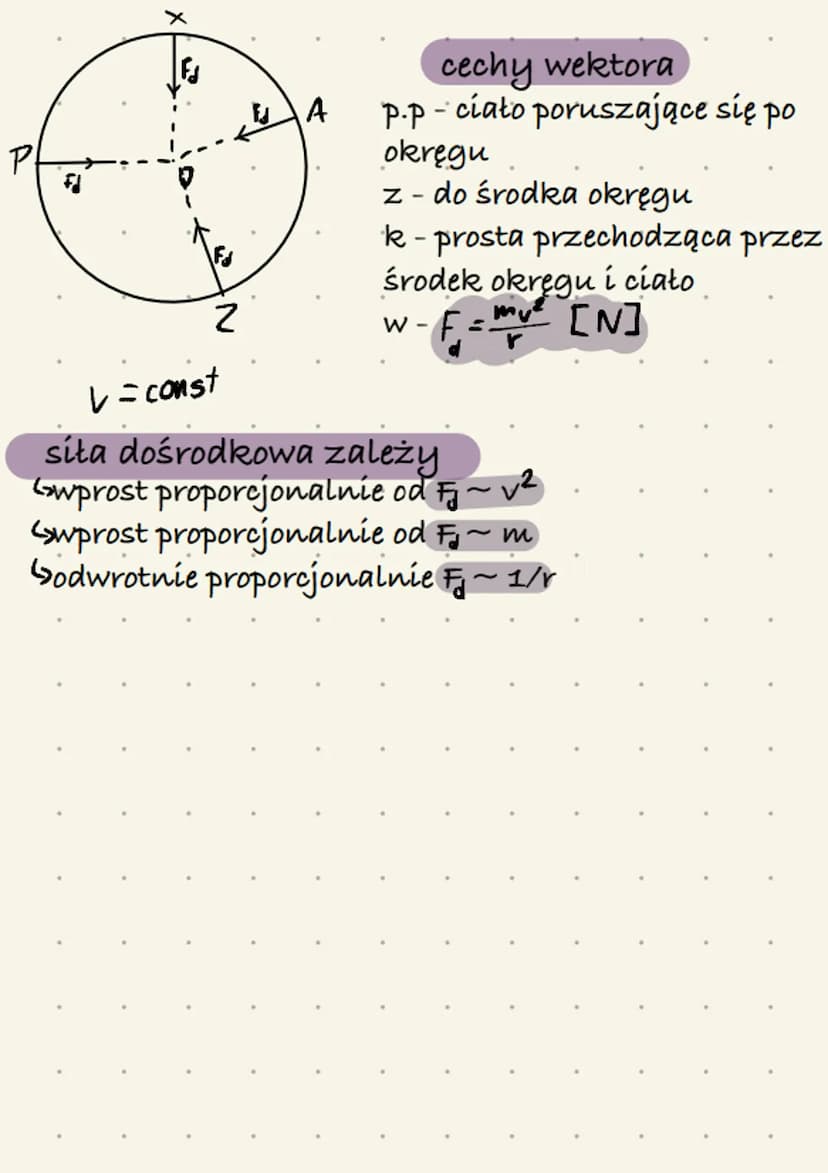 x
Fd
Fd
A
P
Fd
O
Fd
Z
V = const
cechy wektora
p.p - ciało poruszające się po
okręgu
z - do środka okręgu
k - prosta przechodząca przez
środek okręgu i ciało
w - Fd = mv²/r [N]
siła dośrodkowa zależy
↳wprost proporcjonalnie od Fd ~ v²
↳wprost proporcjonalnie od Fd ~ m
↳odwrotnie proporcjonalnie Fd ~ 1/r